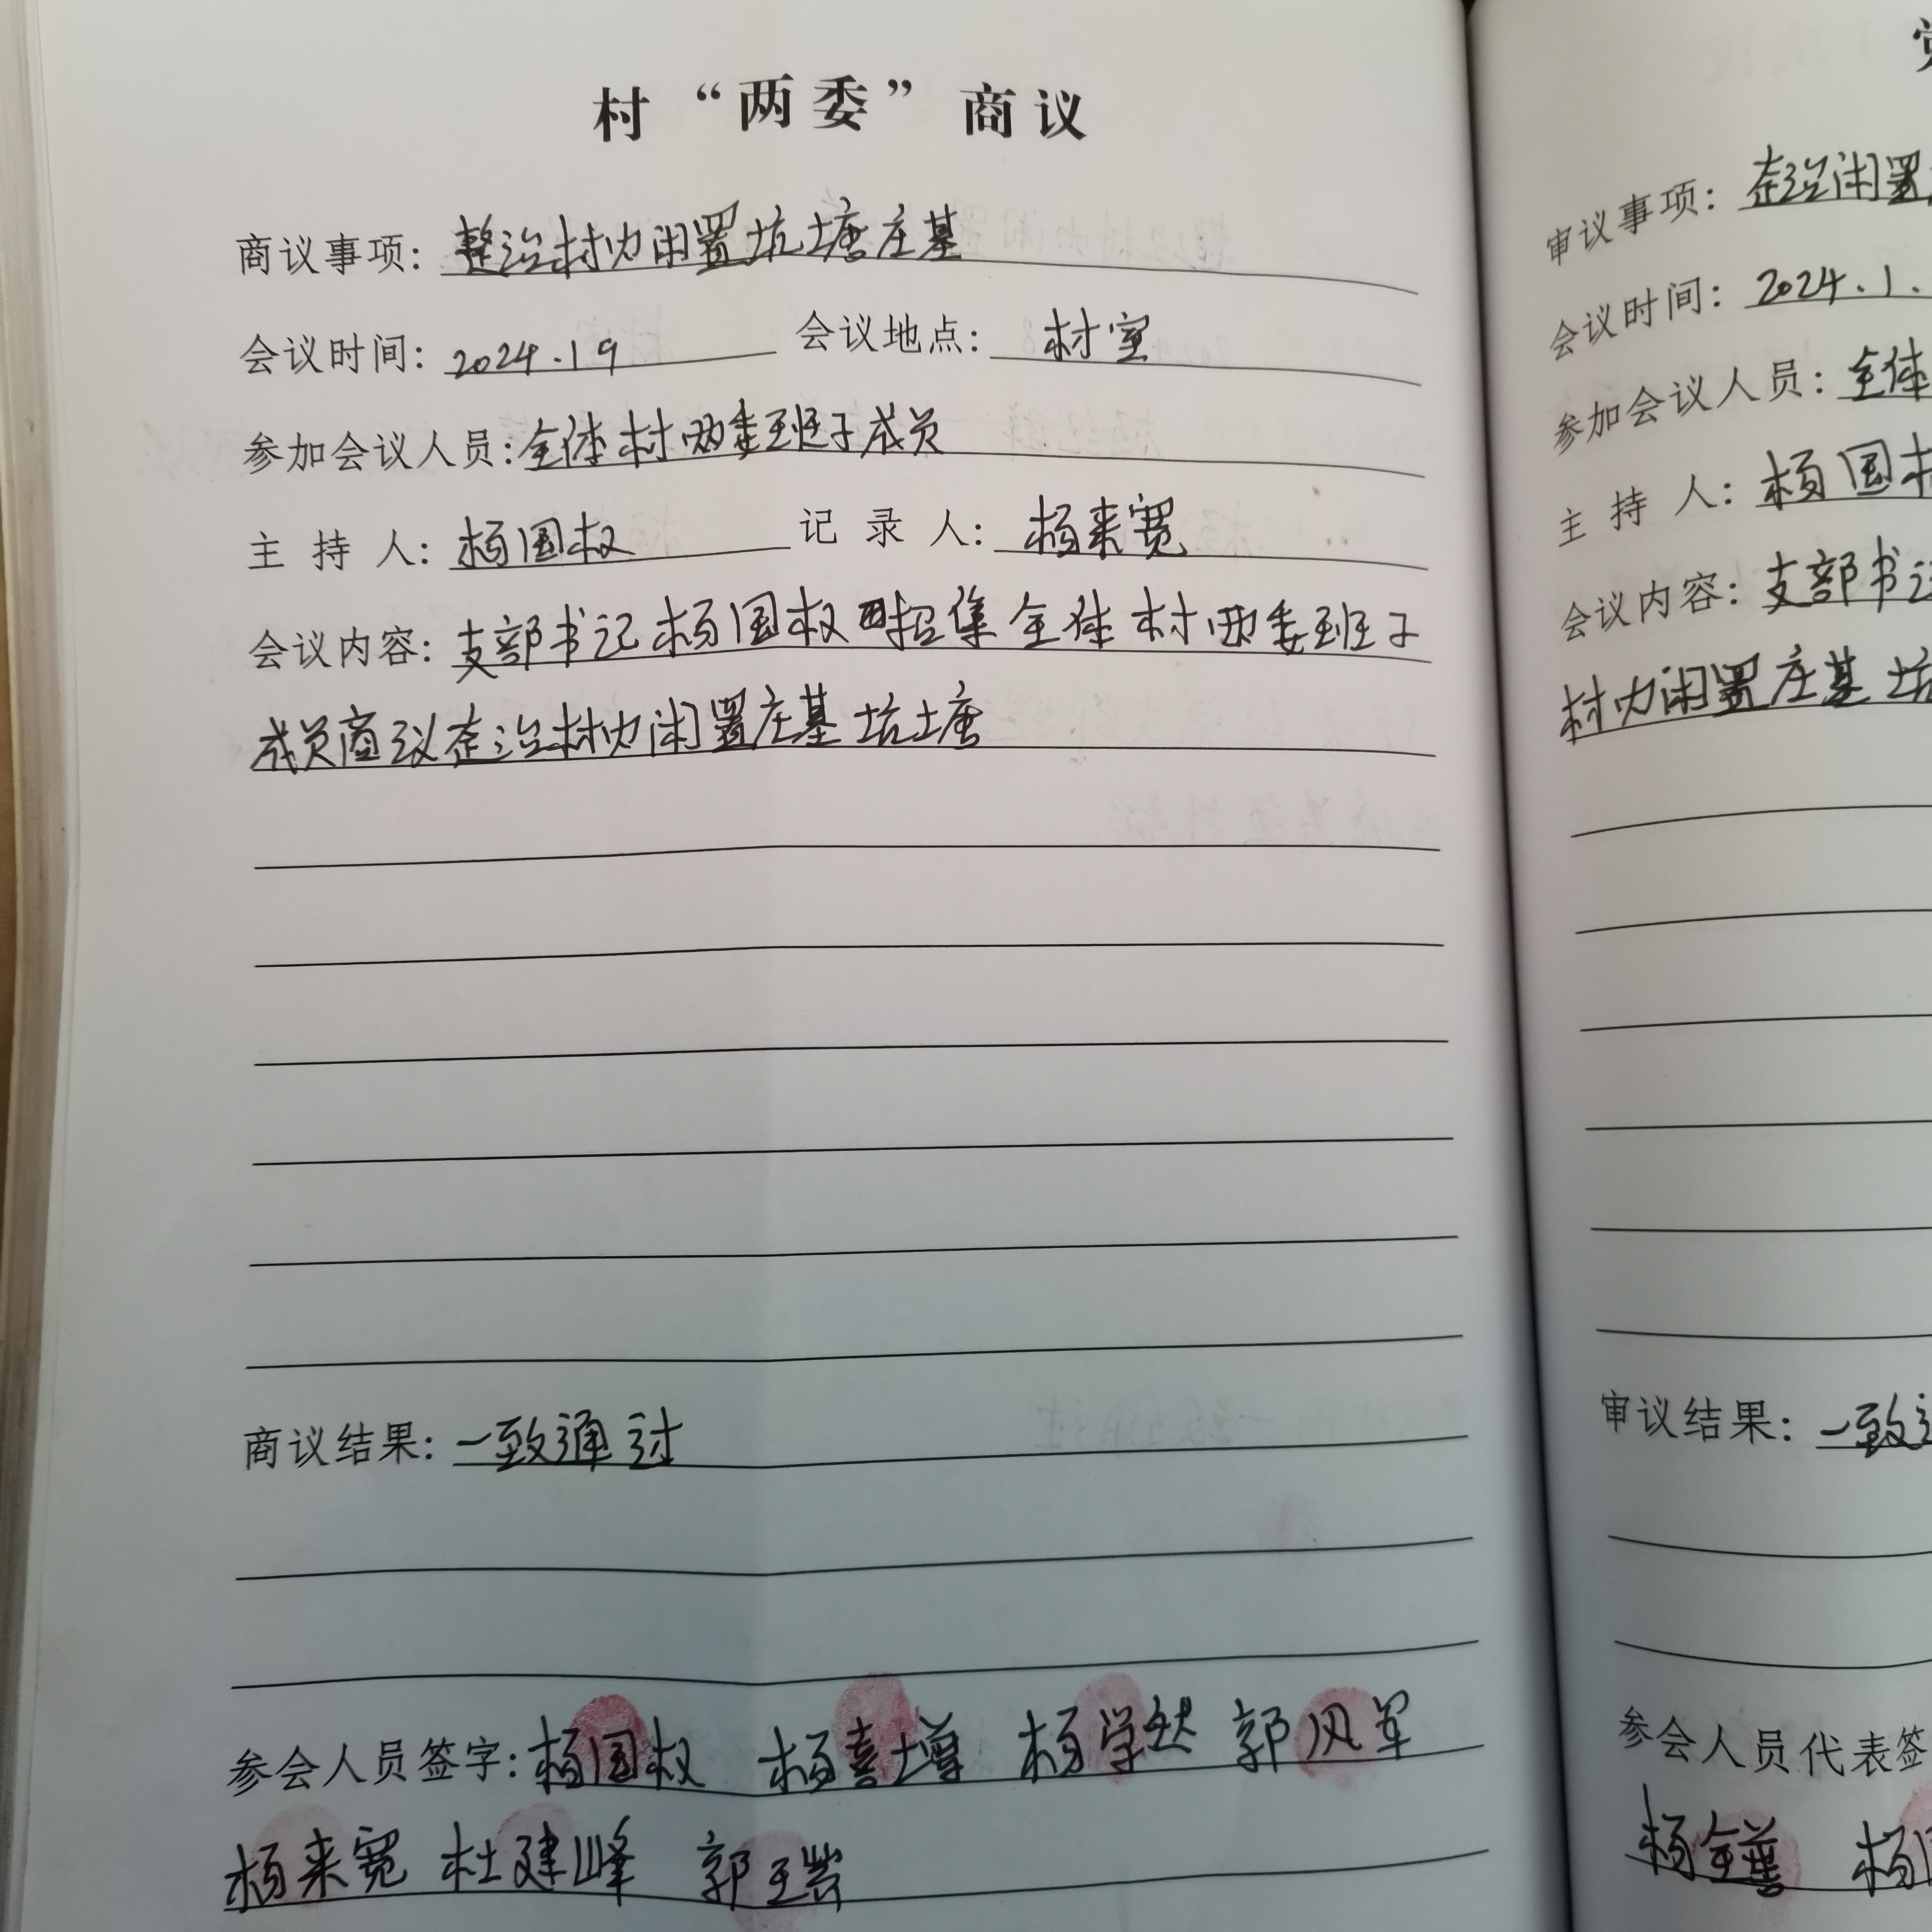 村“两委”商议
商议事项：整治村内闲置坑塘庄基
会议时间：2024.1 9 会议地点：村室
参加会议人员：全体村两委班子成员
主持人：杨国权 记录人：杨来宽
会议内容：支部书记杨国权招集全体村两委班子
成员商议整治村内闲置庄基坑塘
商议结果：一致通过
参会人员签字：杨国权 杨喜增 杨学然 郭风军
杨来宽 杜建峰 郭
审议事项：整治闲置
会议时间：2024.1.
参加会议人员：全体
主持人：杨国
会议内容：支部书
村内闲置庄基坑
审议结果：一致
参会人员代表签
杨金善 杨